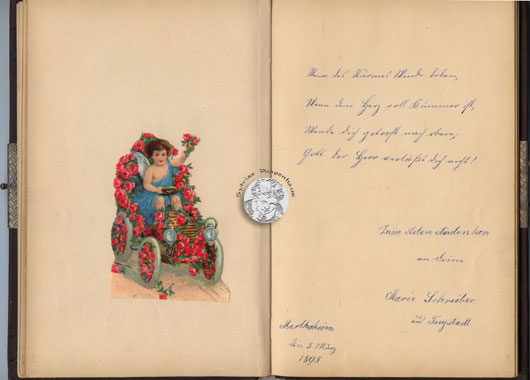 Wenn des Sturmes Winde toben,
Wenn dein Herz voll Kummer ist,
Wende dich getrost nach oben,
Gott der Herr verläßt dich nicht!
Zum steten Andenken
an Deine
Marie Schreiber
aus Freystadt
Marthaheim
den 3. März
1895
Sabines Puppenhaus